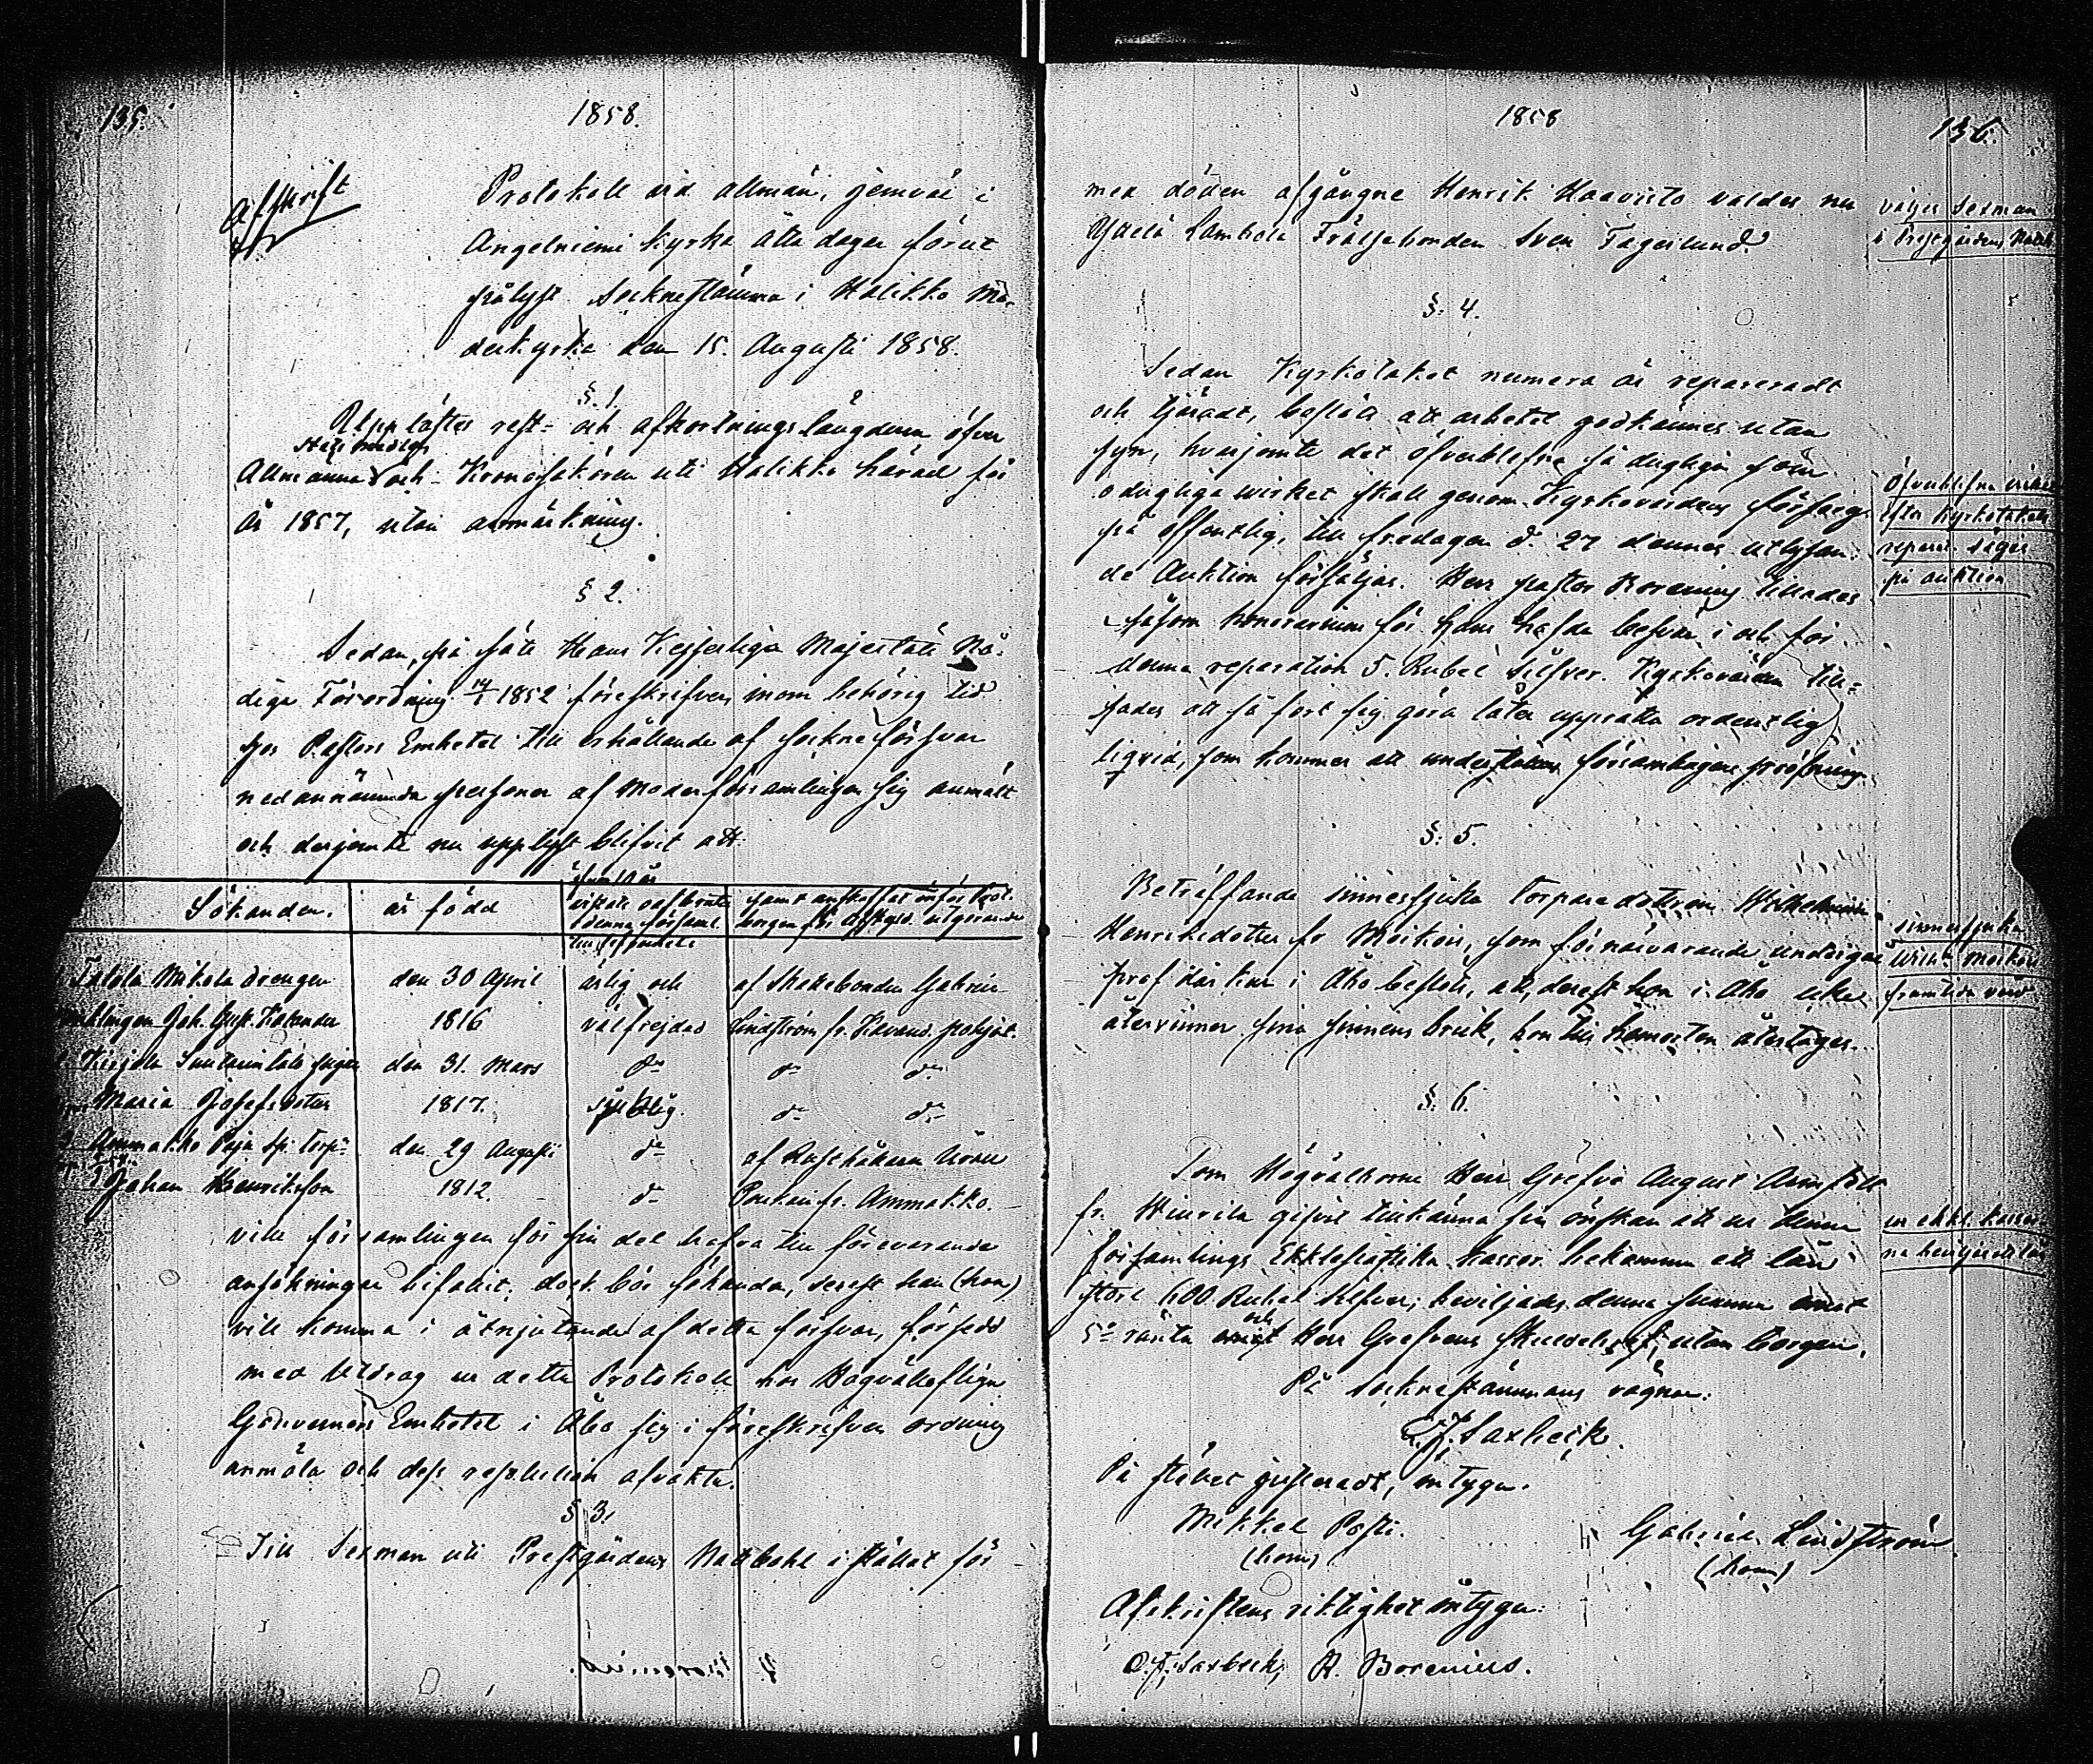 135.
1858.
Afskrift
Protokoll vid allmän, jemväl i
Angelniemi kyrka åtta dagar förut
pålyst Socknestämma i Halikko Mo-
derkyrka den 15. Augusti 1858.
§. 1.
Upplästes rest- och afkortningslängderna öfver
Allmänna och Kronosaköre uti Halikko härad för
år 1857, utan anmärkning.
§ 2.
Sedan, på sätt Hans Kejserliga Majestäts Nå-
diga Förordning 14/1 1852 föreskrifver, inom behörig tid
hos Pastors Embetet till erhållande af sockneförsvar
nedannämnda personer af Moderförsamlingen sig anmält
och derjemte nu upplyst blifvit att
Sökanden.
är född
samt anskaffat
borgen för utgörande
Talola Mikola drengen
den 30 April
ärlig och
af Skattebonden Gabriel
Joh. Gust. Kalander
1816
välfrejdad
Lindström fr.
den 31. Mars
do
do do
Maria Josefsdotter
1817.
sjuklig.
do do
Ammakko
den 29 Augusti
do
af Rusthållaren
Johan Henriksson
1812.
do
fr. Ammakko.
vill församlingen för sin del hafva till förevarande
ansökningar bifallit; dock bör sökanden, derest han (hon)
vill komma i åtnjutande af detta försvar, försedd
med Utdrag ur detta Protokoll hos Högvällofliga
Guvernörs Embetet i Åbo sig i föreskrifven ordning
anmäla och dess resolution afvakta.
§ 3.
Till Sexman uti Prestgårdens Nattbohl i stället för
1858
136.
med döden afgångne Henrik Haavisto valdes nu
Yttelä Lambola Frälsebonden Sven Fagerlund.
väljes sexman
i Prestgårdens Nattb.
§. 4.
Sedan Kyrkotaket numera är repareradt
och tjäradt, beslöts att arbetet godkännes utan
syn, hvarjemte det öfverblefne så dugliga som
odugliga virket skall genom Kyrkovärdens försorg
på offentlig, till fredagen d. 27 dennes utlysan-
de Auktion försäljas. Herr pastor Borenius tillades
såsom honorarium för hans hafda besvär i och för
denna reparation 5. Rubel Silfver. Kyrkovärden till-
sades att så fort sig göra låter upprätta ordentlig
liqvid, som kommer att underställas församlingens pröfning.
Öfverblefne virket
efter kyrkotakets
repar. säljes
på auktion
§. 5.
Beträffande sinnessjuka Torparedottren Wilhelmina
Henriksdotter fr. Moikois, som för närvarande undergår
prof i Åbo beslöts, att, derest hon i Åbo icke
återvinner sina sinnens bruk, hon till hemorten återtages.
sinnessjuka
Wilh. Moikois
framtida vård
§. 6.
Som Högvälborne Herr Grefve August Armfelt
fr. Wiurila gifvit tillkänna sin önskan att ur denna
församlings Ekklesiastika kassor bekomma ett lån
stort 600 Rubel Silfver; beviljades denna summa emot
5% ränta och Herr Grefvens skuldsedel, utan borgen.
ur ekkl. kassor-
na beviljades lån
På Socknestämmans vägnar:
C. J. Saxbeck.
På stället justeradt, intyga.
Mikkel Pösti.
(bom)
Gabriel Lindström
(bom)
Afskriftens riktighet intyga:
C. J. Saxbeck, R. Borenius.